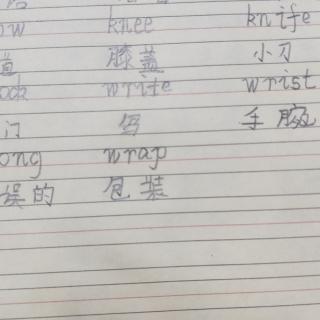 ow knee knife
道 膝盖 小刀
ock write wrist
门 写 手腕
ong wrap
误的 包装